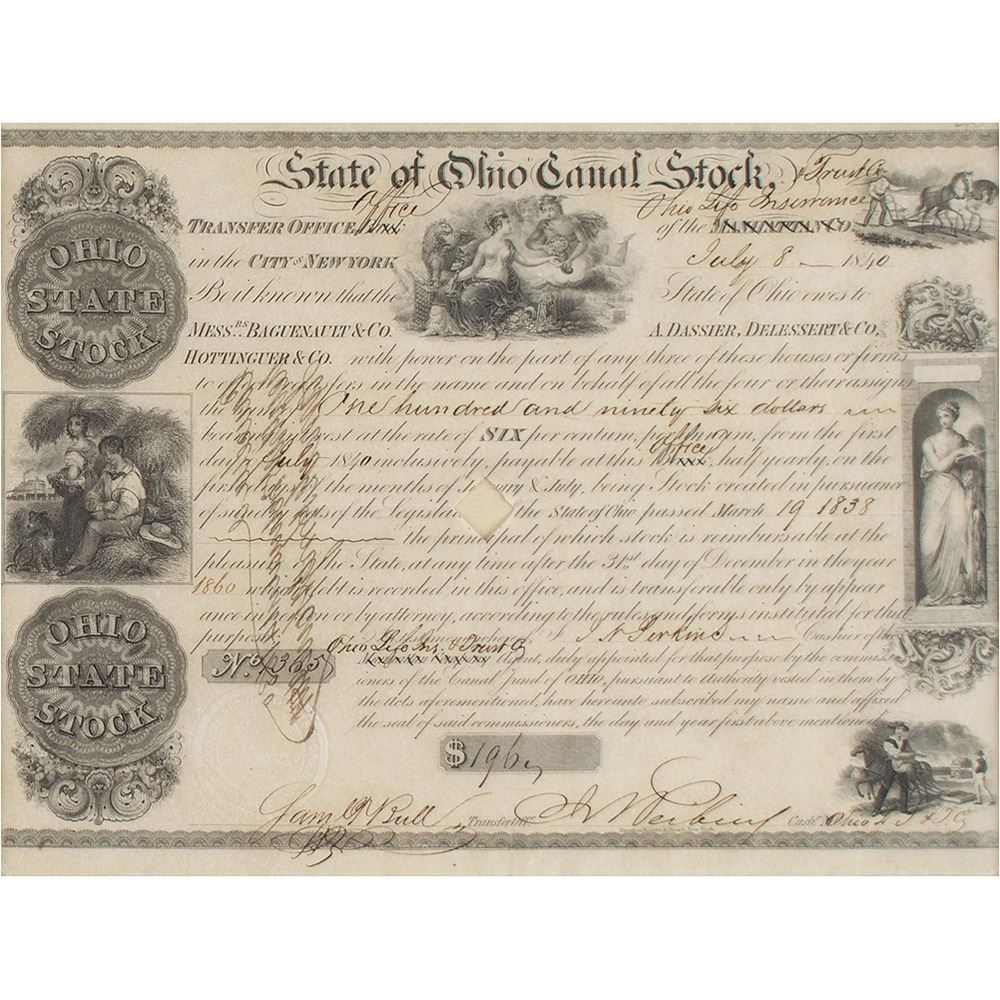 State of Ohio Canal Stock,
& Trust Co
Office
Ohio Life Insurrance
TRANSFER OFFICE, BANK of the MANHATTAN CO.
in the CITY OF NEW YORK July 8 1840
Be it known that the State of Ohio owes to
MESS.RS BAGUENAULT & CO. A. DASSIER, DELESSERT & CO.
HOTTINGUER & CO. with power on the part of any three of these houses or firms
to effect transfers in the name and on behalf of all the four or their assigns
the sum of One hundred and ninety six dollars
bearing interest at the rate of SIX per centum, per annum, from the first
Office
day of July 1840 inclusively, payable at this BANK, half yearly, on the
first days of the months of January & July, being Stock created in pursuance
of sundry Acts of the Legislature of the State of Ohio passed March 19 1838
the principal of which stock is reimbursable at the
pleasure of the State, at any time after the 31st day of December in the year
1860 which debt is recorded in this office, and is transferable only by appear
ance in person or by attorney, according to the rules and forms instituted for that
purpose. In Testimony whereof I J N Perkins Cashier of the
Ohio Life Ins. & Trust Co
Agent, duly appointed for that purpose by the commiss
ioners of the Canal fund of OHIO, pursuant to Authority vested in them by
the acts aforementioned, have hereunto subscribed my name and affixed
the seal of said commissioners, the day and year first above mentioned
No. 365
$196
Saml O Bull Transfer Offr. J N Perkins Cashr. Ohio L I & T. Co
OHIO
STATE
STOCK
OHIO
STATE
STOCK